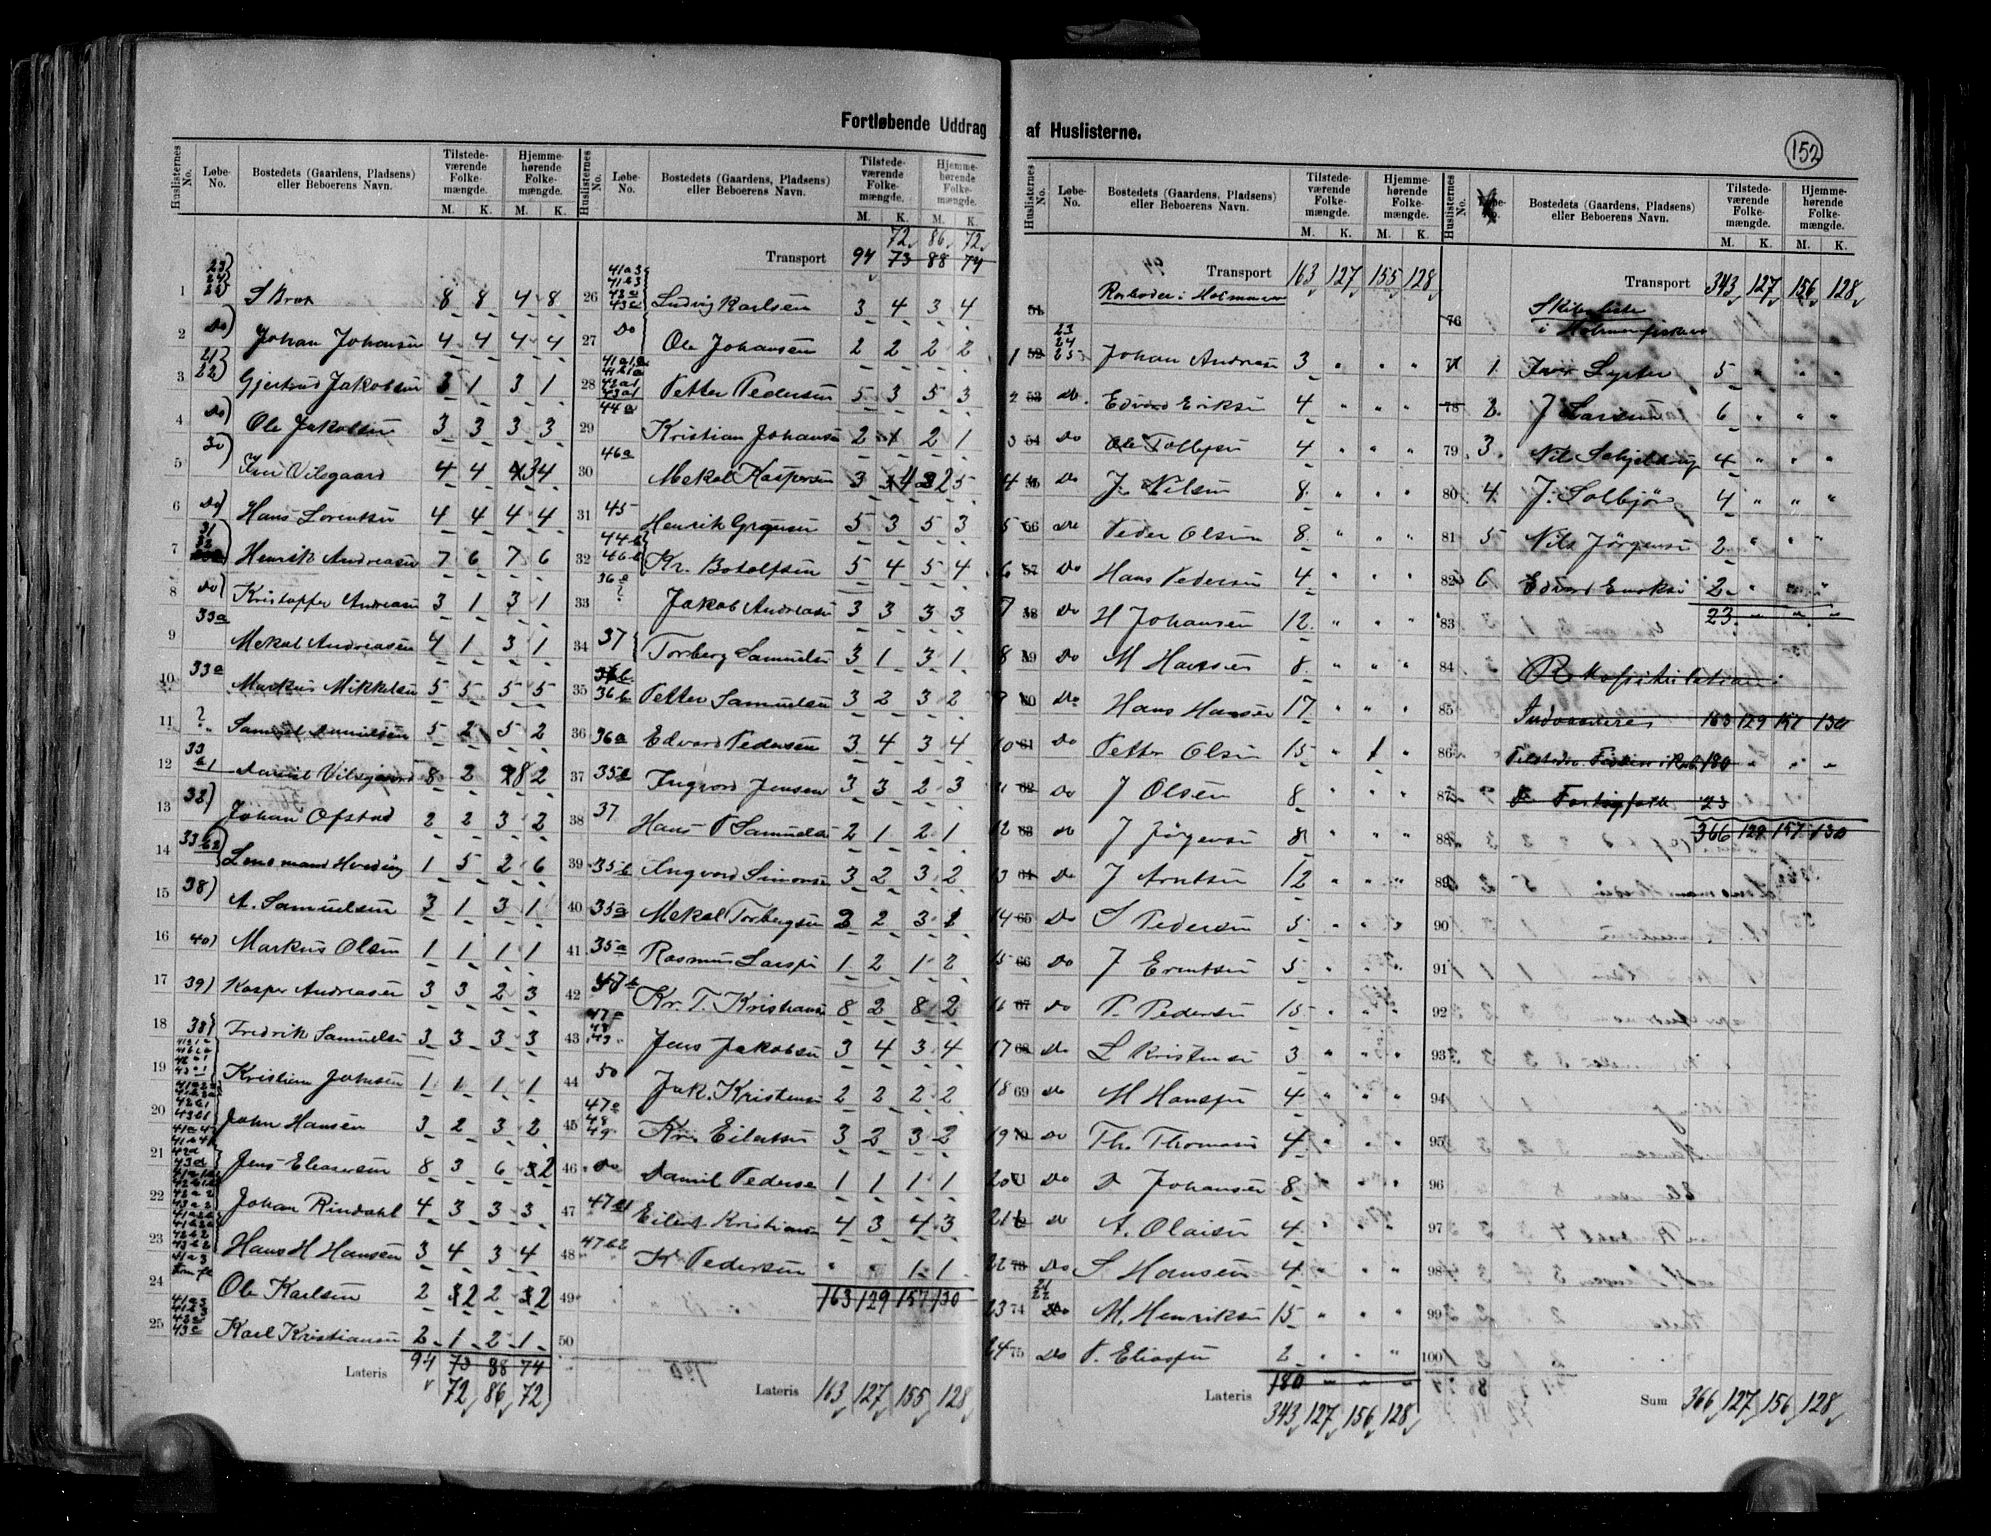 Fortløbende Uddrag af Huslisterne.
152
Huslisternes No. Løbe-No. Bostedets (Gaardens, Pladsens) eller Beboerens Navn. Tilstedeværende Folkemængde. Hjemmehørende Folkemængde.
M. K. M. K.
1 S Brox 8 8 4 8
2 Do) Johan Johansen 4 4 4 4
3 21) 22) Gjertrud Jakobsen 3 1 3 1
4 Do) Ole Jakobsen 3 3 3 3
5 Do) Vilsgaard 4 4 3 4
6 Do) Hans Lorentsen 4 4 4 4
7 31 32 Henrik Andreasen 7 6 7 6
8 Do) Kristoffer Andreasen 3 1 3 1
9 33a Mekal Andreasen 4 1 3 1
10 33a Markus Mikkelsen 5 5 5 5
11 ? Samuel Danielsen 5 2 5 2
12 33 Daniel Vilsgaard 8 2 8 2
13 32) Johan Ofstad 2 2 3 2
14 33 b2) Lensmand Hveding 1 5 2 6
15 38) A. Samuelsen 3 1 3 1
16 40) Markus Olsen 1 1 1 1
17 39) Kasper Andreasen 3 3 2 3
18 38) Fredrik Samuelsen 3 3 3 3
19 Kristian Johnsen 1 1 1 1
20 John Hansen 3 2 3 2
21 Jens Eliasersen 8 3 6 2
22 Johan Rindahl 4 3 3 3
23 Hans H Hansen 3 4 3 4
24 Ole Karlsen 2 2 2 2
25 Karl Kristiansen 2 1 2 1
94 73 88 74
Lateris 72 86 72
Huslisternes No. Løbe-No. Bostedets (Gaardens, Pladsens) eller Beboerens Navn. Tilstedeværende Folkemængde. Hjemmehørende Folkemængde.
M. K. M. K.
72 86 72
Transport 94 73 88 74
26 41a3 41b3 42e 43e Ludvig Karlsen 3 4 3 4
27 Do Ole Johansen 2 2 2 2
28 Petter Pedersen 5 3 5 3
29 44a Kristian Johansen 2 1 2 1
30 46a Mekal Kaspersen 3 4 2 5
31 45 Henrik Grønsen 5 3 5 3
32 44b 46b Kr. Botolfsen 5 4 5 4
33 36a ? Jakob Andreasen 3 3 3 3
34 37 Torberg Samuelsen 3 1 3 1
35 36b Petter Samuelsen 3 2 3 2
36 36a Edvard Pedersen 3 4 3 4
37 35b Ingvard Jensen 3 3 2 3
38 37 Hans P Samuelsen 2 1 2 1
39 35b Angvard Simonsen 3 2 3 2
40 35a Mekal Torbergsen 2 2 3 1
41 35a Rasmus Larsen 1 2 1 2
42 Kr. T. Kristiansen 8 2 8 2
43 47a 48 49 Jens Jakobsen 3 4 3 4
44 50 Jak. Kristensen 2 2 2 2
45 47a 48 49 Kr. Eilertsen 3 2 3 2
46 Do Daniel Pedersen 1 1 1 1
47 47b1 Eilert Kristiansen 4 3 4 3
48 47b2 K Pedersen " " 1 1
49 163 129 157 130
50
Lateris 163 127 155 128
Huslisternes No. Løbe-No. Bostedets (Gaardens, Pladsens) eller Beboerens Navn. Tilstedeværende Folkemængde. Hjemmehørende Folkemængde.
M. K. M. K.
Transport 163 127 155 128
51 Rorboder i Holmmen
1 52 23 24 25 Johan Andreasen 3 " " "
2 53 do. Edvard Eriksen 4 " " "
3 54 Do Ole Tolbjsen 4 " " "
4 55 Do J. Nilsen 8 " " "
5 56 Do Peder Olsen 8 " " "
6 57 Do Hans Pedersen 4 " " "
7 58 Do H Johansen 12 " " "
8 59 Do M Hansen 8 " " "
9 60 Do Hans Hansen 17 " " "
10 61 Do Petter Olsen 15 " 1 "
11 62 Do J Olsen 8 " " "
12 63 do J Jørgensen 8 " " "
13 64 Do J Arntsen 12 " " "
14 65 Do S Pedersen 5 " " "
15 66 Do J Erentsen 5 " " "
16 67 Do P. Pedersen 15 " " "
17 68 Do L Kristensen 3 " " "
18 69 Do M Hansen 4 " " "
19 70 Do Th. Thomassen 4 " " "
20 71 Do D Johansen 8 " " "
21 72 Do A. Olaisen 4 " " "
22 73 Do S Hansen 4 " " "
23 74 21 22 Do M. Henriksen 15 " " "
24 75 Do P. Eliassen 2 " " "
180 " " "
Lateris 343 127 156 128
Huslisternes No. Løbe-No. Bostedets (Gaardens, Pladsens) eller Beboerens Navn. Tilstedeværende Folkemængde. Hjemmehørende Folkemængde.
M. K. M. K.
Transport 343 127 156 128
76 Skibsliste i
77 1 Iver Lyster 5 " " "
78 2. J Larsen 6 " " "
79 3. Nils Schjeldrup 4 " " "
80 4 J. Solbjør 4 " " "
81 5 Nils Jørgensen 2 " " "
82 6 Edvard 2 " " "
83 23 " " "
84 Rekapitulation:
85 Indvaanere 163 129 157 130
86 Tilstedev. Fiskere i Rorb. 180 " " "
87 D. 23
88 366 129 157 130
89
90
91
92
93
94
95
96
97
98
99
100
Sum 366 127 156 128